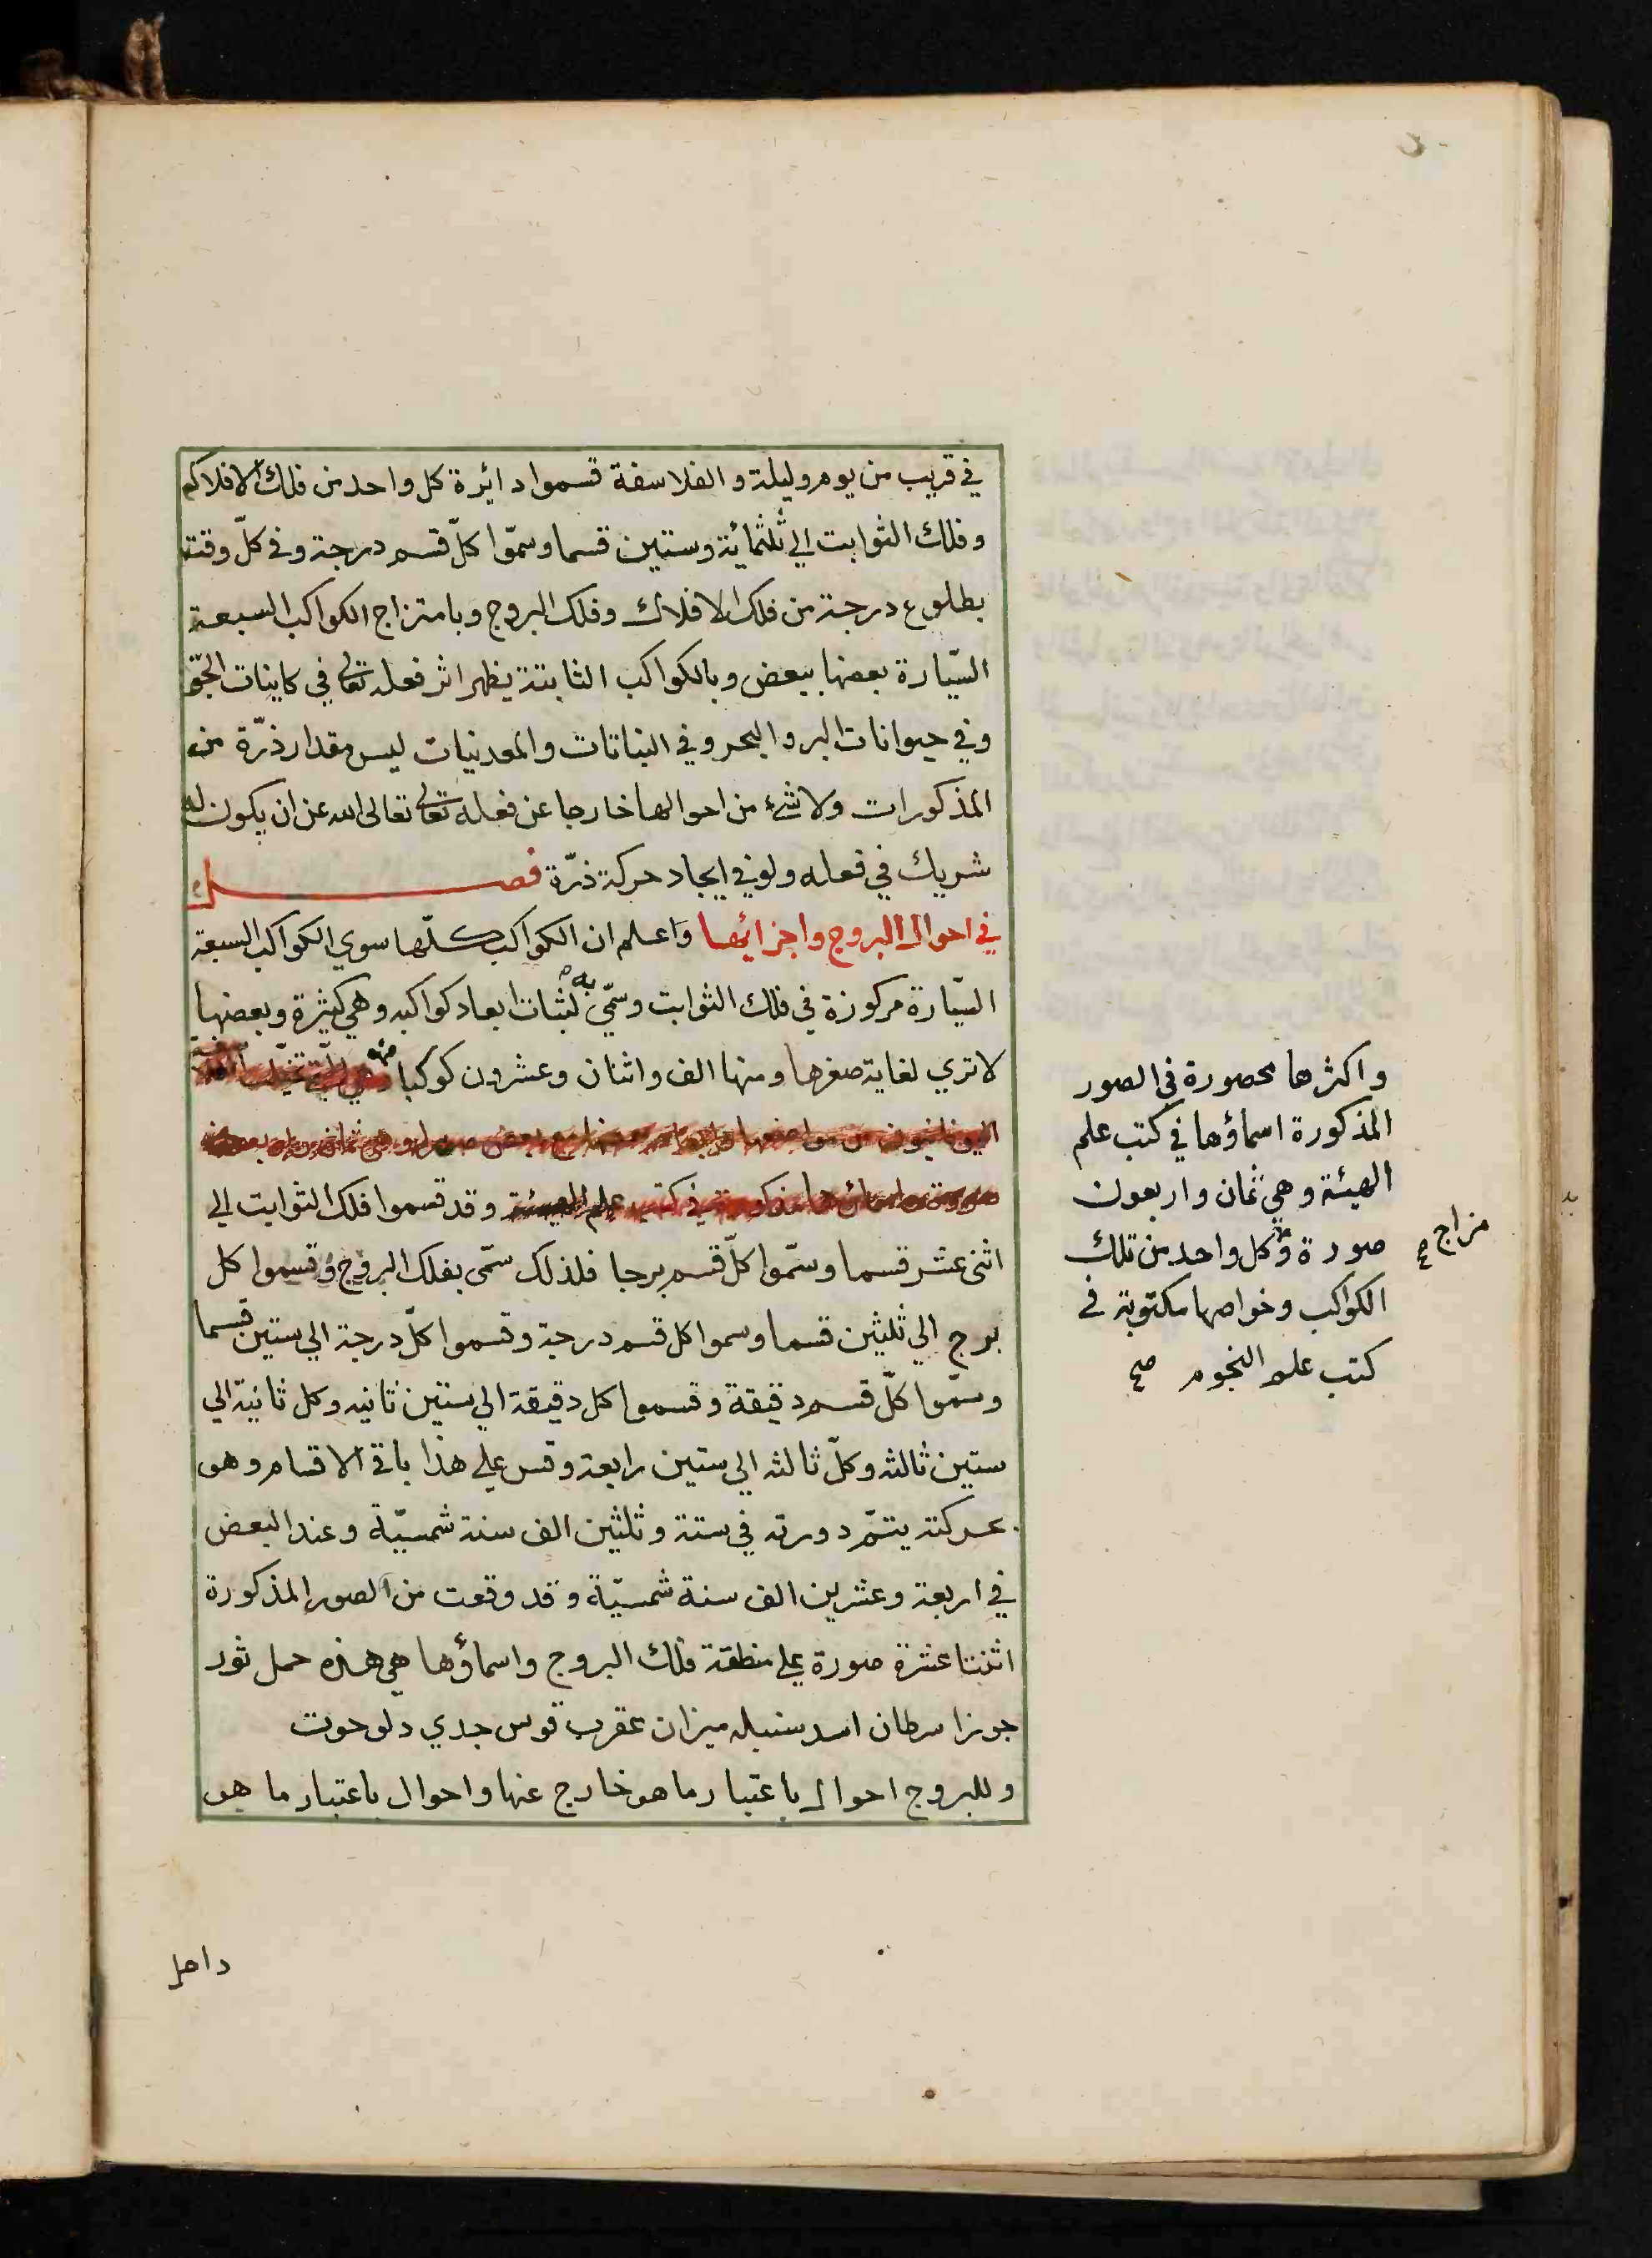 في قريب من يوم وليلة و الفلاسفة قسموا دائرة كل واحد من فلك الافلاك
وفلك الثوابت الي ثلثمائة وستين قسما وسمّوا كلّ قسم درجة وفي كلّ وقت
بطلوع درجة من فلك الافلاك وفلك البروج وبامتزاج الكواكب السبعة
السيّارة بعضها ببعض وبالكواكب الثابتة يظهر اثر فعله تعالى في كاينات الجوّ
وفي حيوانات البر والبحر وفي النباتات والمعدنيات ليس مقدار ذرّة من
المذكورات ولا شئ من احوالها خارجا عن فعله تعالى تعالى الله عن ان يكون له
شريك في فعله ولو في ايجاد حركة ذرّة فصل
في احوال البروج واجزائها واعلم ان الكواكب كلّها سوي الكواكب السبعة
السيّارة مركوزة في فلك الثوابت وسمّي به لثبات ابعاد كواكبه وهي كثيرة وبعضها
لا تري لغاية صغرها ومنها الف واثنان وعشرون كوكبا
وقد قسموا فلك الثوابت الي
اثني عشر قسما وسمّوا كلّ قسم برجا فلذلك سمّى بفلك البروج وقسموا كل
برج الي ثلثين قسما وسموا كل قسم درجة وقسموا كلّ درجة الي ستين قسما
وسمّوا كلّ قسم دقيقة وقسموا كل دقيقة الي ستين ثانيه وكل ثانية الي
ستين ثالثه وكلّ ثالثه الي ستين رابعة وقس علي هذا باقي الاقسام وهو
بحركته يتمّ دورته في ستة وثلثين الف سنة شمسيّة وعند البعض
في اربعة وعشرين الف سنة شمسيّة وقد وقعت من الصور المذكورة
اثنتا عشرة صورة علي منطقة فلك البروج واسماؤها هي هذه حمل ثور
جوزا سرطان اسد سنبله ميزان عقرب قوس جدي دلو حوت
وللبروج احوال باعتبار ما هو خارج عنها واحوال باعتبار ما هو
داخل
واكثرها محصورة في الصور
المذكورة اسماؤها في كتب علم
الهيئة وهي ثمان واربعون
صورة و كل واحد من تلك
الكواكب وخواصها مكتوبة في
كتب علم النجوم صح
مزاج صح